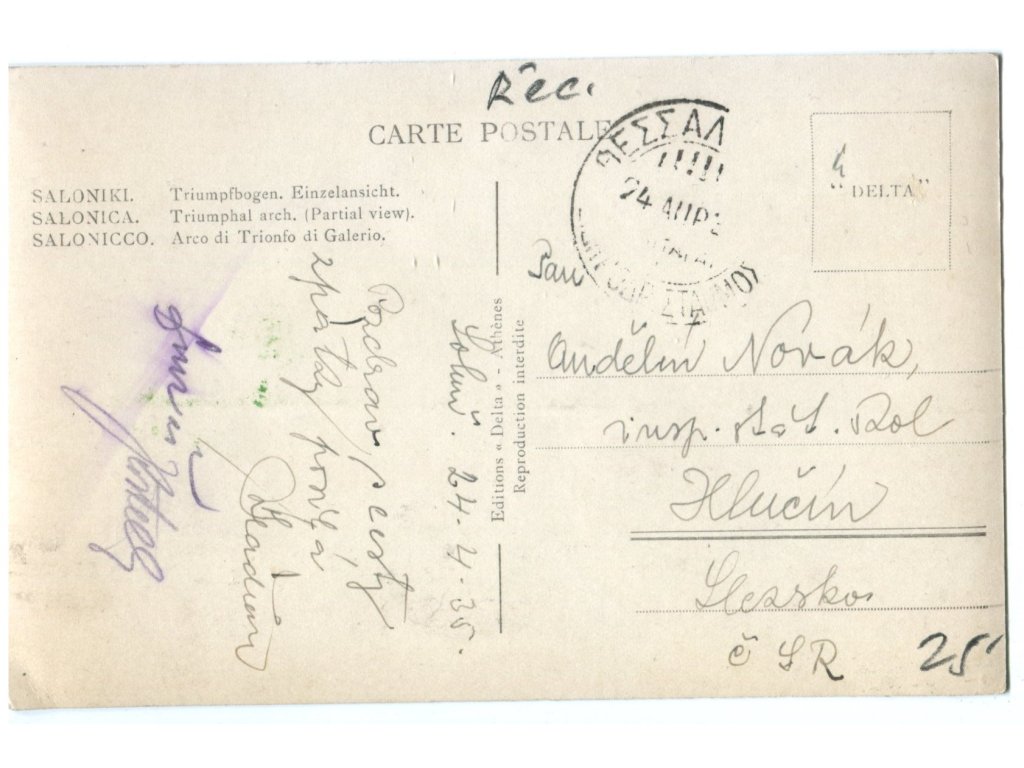 Řec.
CARTE POSTALE
SALONIKI. Triumpfbogen. Einzelansicht.
SALONICA. Triumphal arch. (Partial view).
SALONICCO. Arco di Trionfo di Galerio.
ΘΕΣΣΑΛ
24 ΑΠΡ
"DELTA"
Editions « Delta » - Athènes
Reproduction interdite
Soluň. 24.4.35.
Pozdrav s cesty
zpátky posílá
Pan
Andělín Novák,
insp. stát. Pol
Hlučín
Slezsko
č S R
25